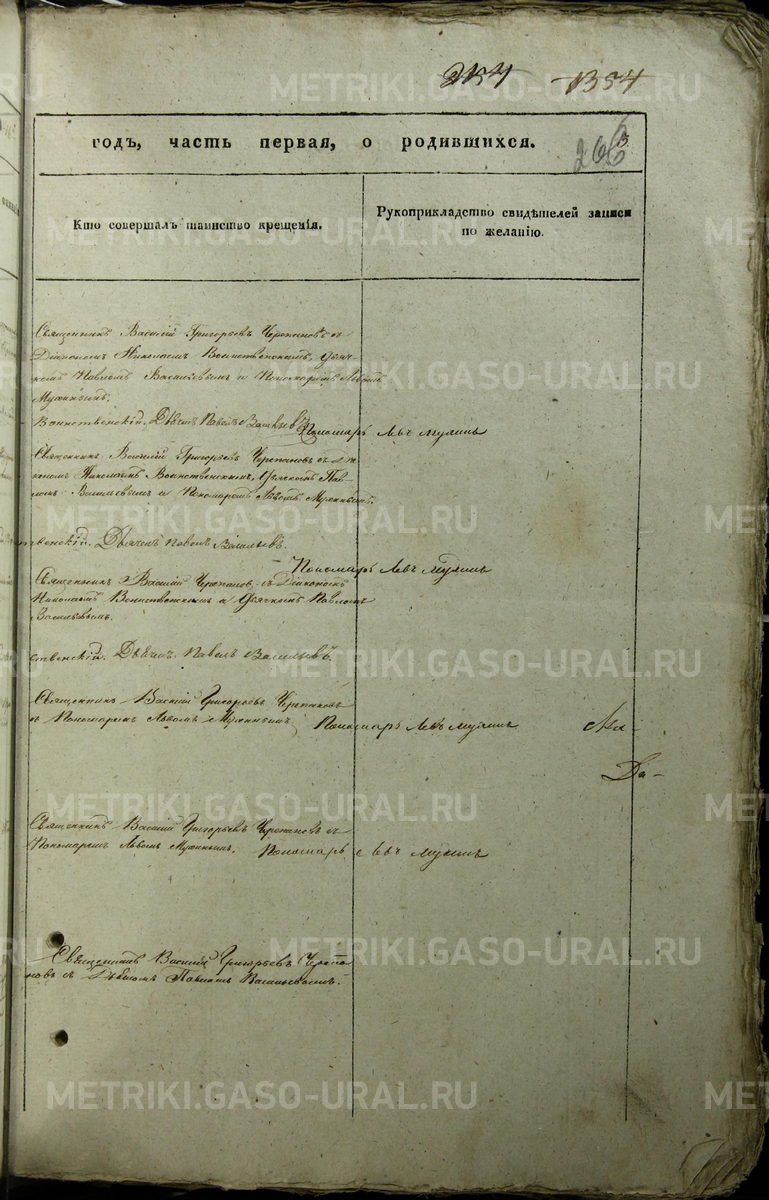 254 1354
266
годъ, часть первая, о родившихся.
Кто совершалъ таинство крещенія.
Рукоприкладство свидѣтелей записи по желанію.
Священникъ Василій Григорьевъ Черепановъ съ
Діакономъ Николаемъ Воинственскимъ, Дьяч-
комъ Павломъ Васильевымъ и Пономаремъ Львомъ
Мухинымъ.
Воинственскій. Дьячекъ Павелъ Васильевъ
Пономарь Левъ Мухинъ
Священникъ Василій Григорьевъ Черепановъ съ Діа-
кономъ Николаемъ Воинственскимъ, Дьячкомъ Пав-
ломъ Васильевымъ и Пономаремъ Львомъ Мухинымъ.
твенскій. Дьячекъ Павелъ Васильевъ.
Пономарь Левъ Мухинъ
Священникъ Василій Черепановъ, съ Діакономъ
Николаемъ Воинственскимъ и Дьячкомъ Павломъ
Васильевымъ.
ственскій. Дьячекъ Павелъ Васильевъ.
Священникъ Василій Григорьевъ Черепановъ
съ Пономаремъ Львомъ Мухинымъ
Пономарь Левъ Мухинъ
Да-
Священникъ Василій Григорьевъ Черепановъ съ
Пономаремъ Львомъ Мухинымъ.
Пономарь Левъ Мухинъ
Священникъ Василій Григорьевъ Черепа-
новъ съ Дьячкомъ Павломъ Васильевымъ.
METRIKI.GASO-URAL.RU